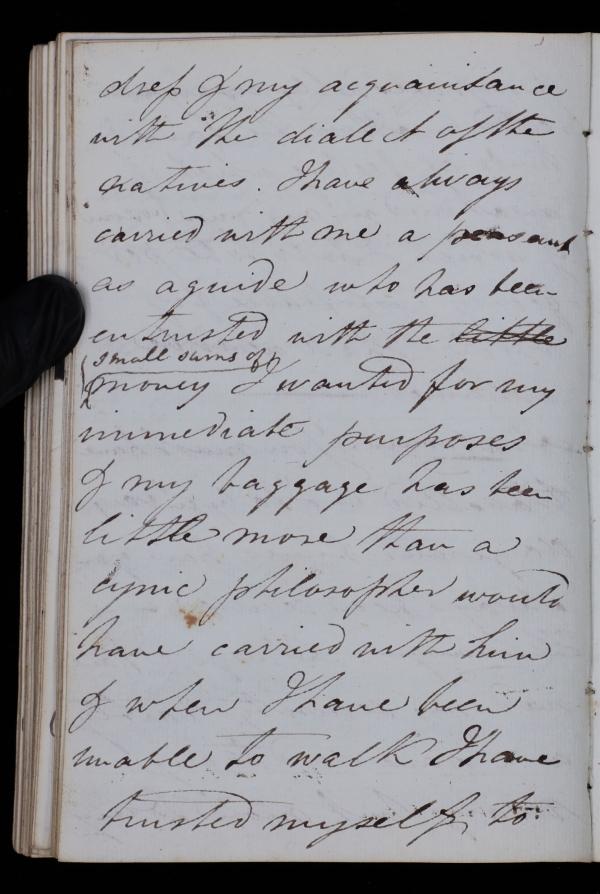 dress & my acquaintance
with the dialect of the
natives. I have always
carried with me a peasant
as a guide who has been
entrusted with the little
small sums of
money I wanted for my
immediate purposes
& my baggage has been
little more than a
cynic philosopher would
have carried with him
& when I have been
unable to walk I have
trusted myself to